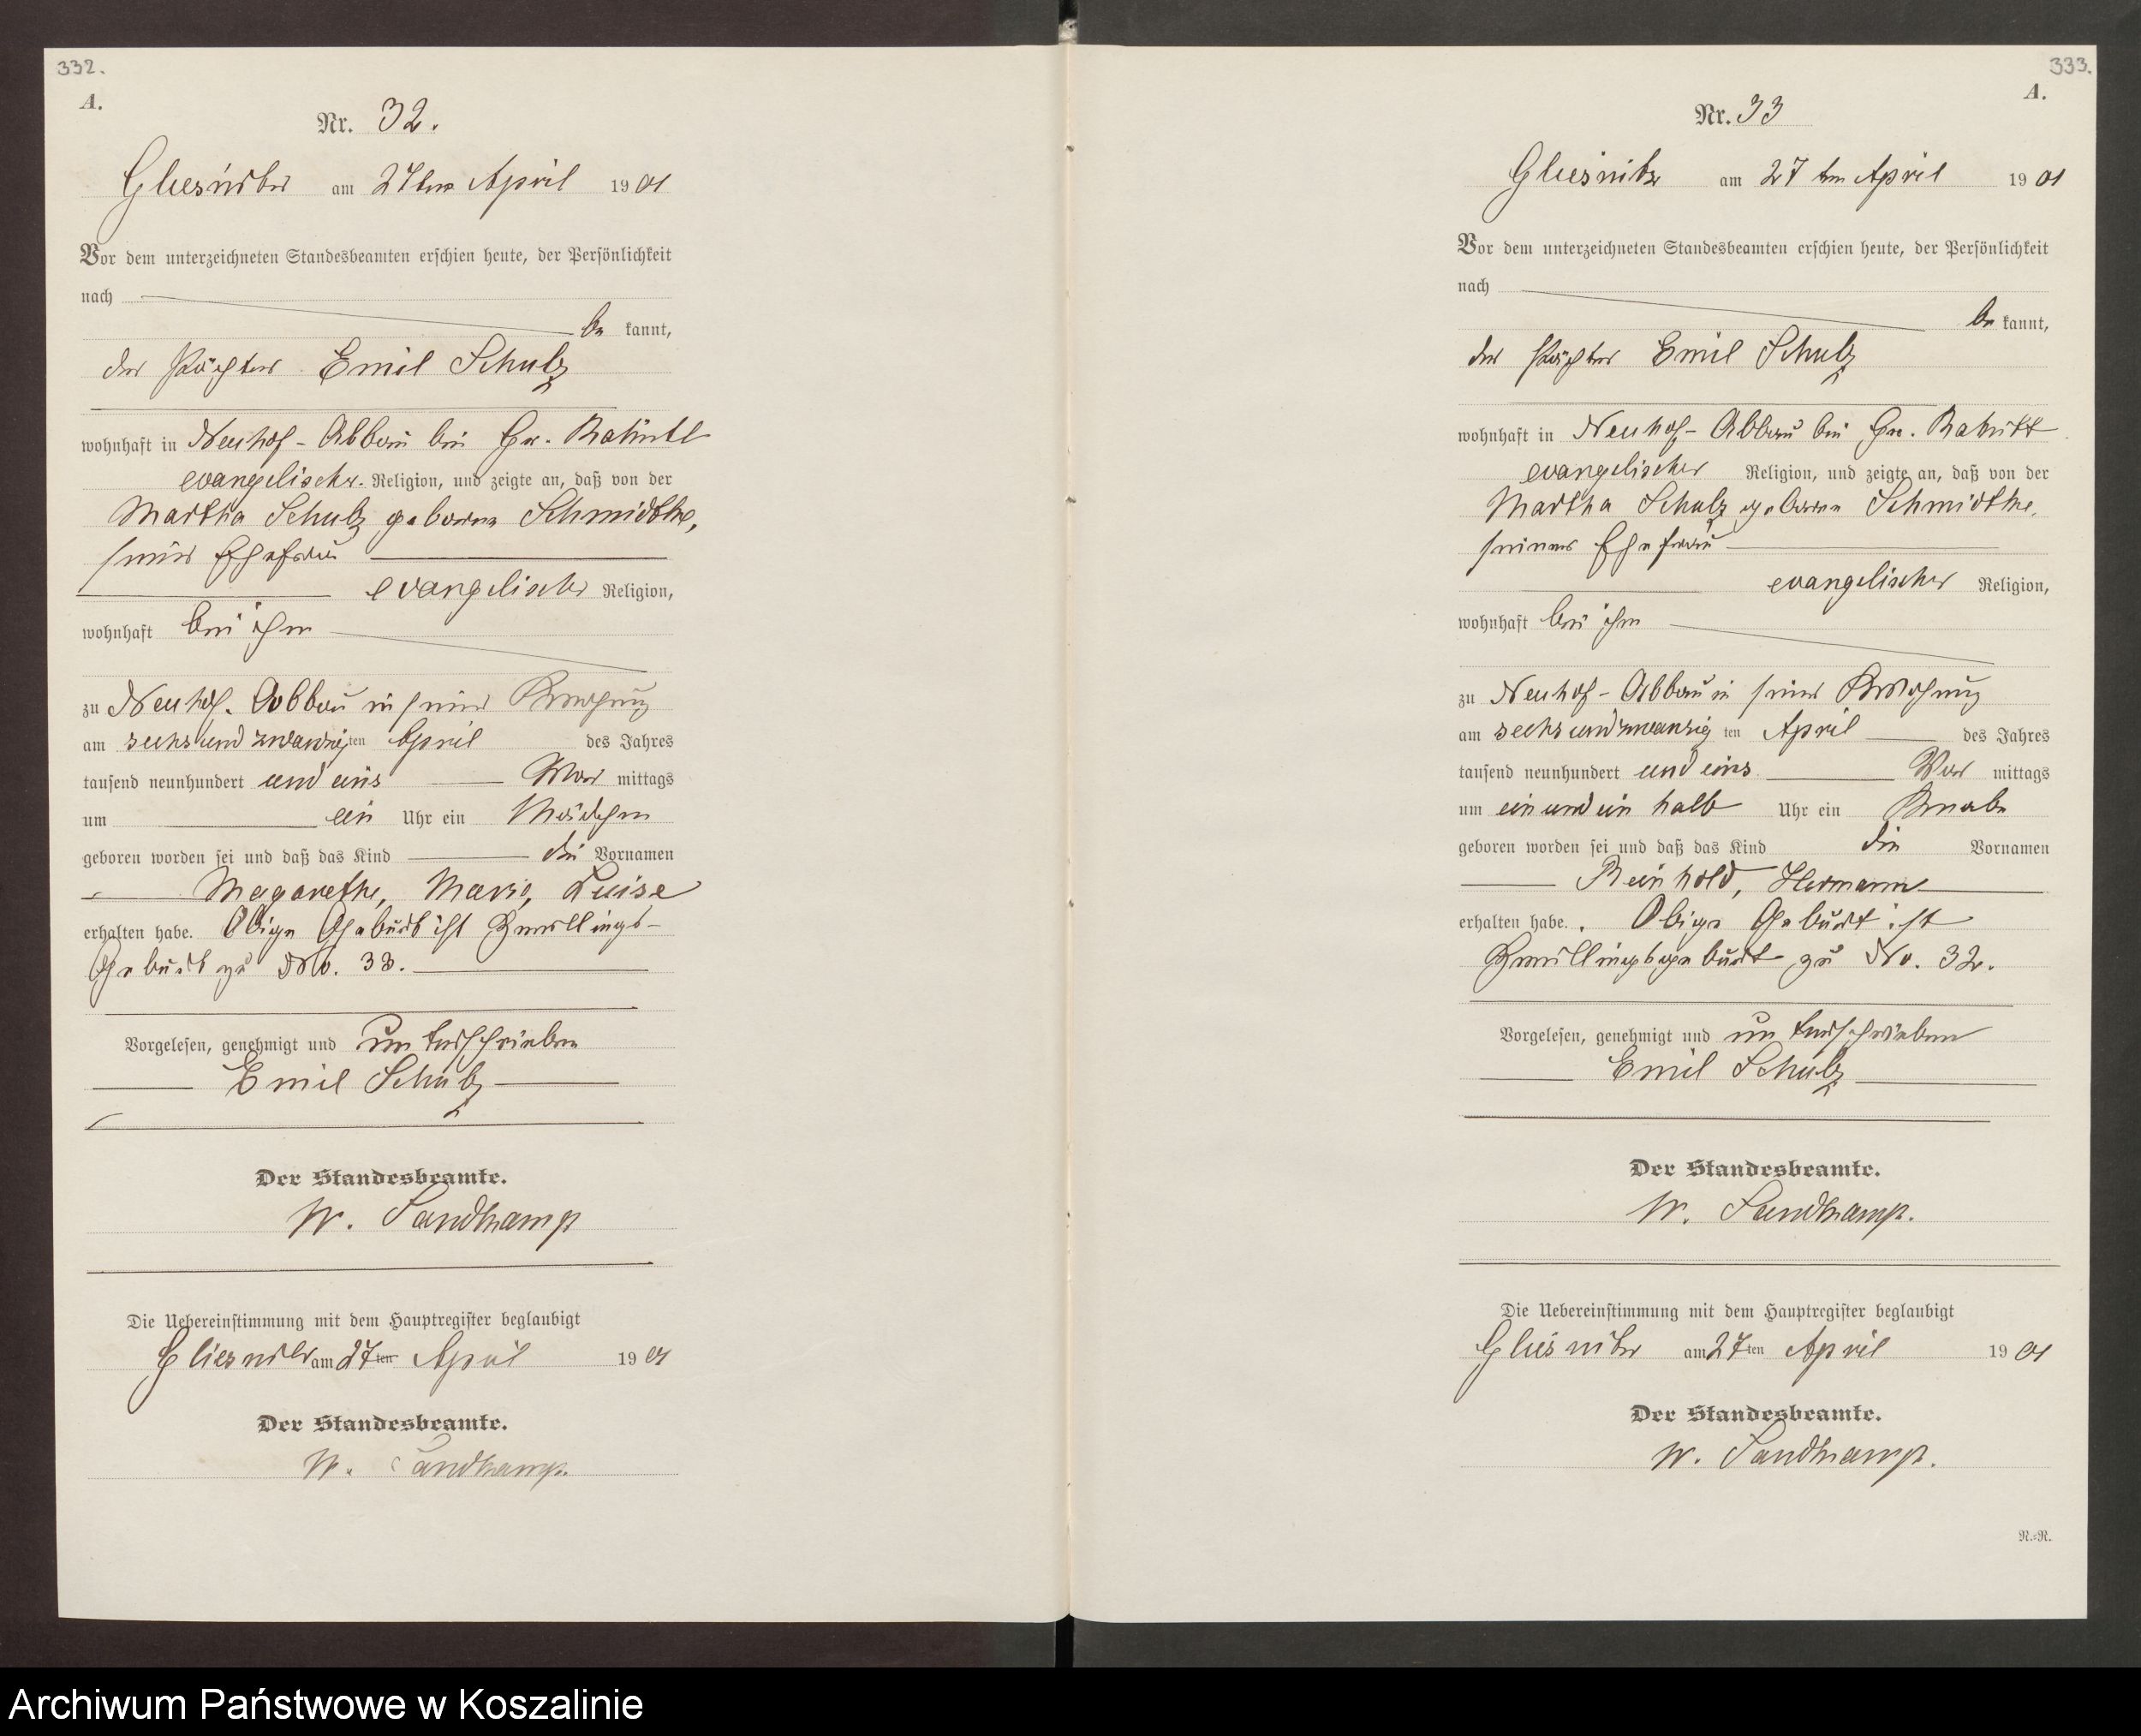 332.
A.
Nr. 32.
Gliesnitz am 27ten April 1901
Vor dem unterzeichneten Standesbeamten erschien heute, der Persönlichkeit
nach
be kannt,
der Pächter Emil Schulz
wohnhaft in Neuhof-Abbau bei Gr.
evangelischer Religion, und zeigte an, daß von der
Martha Schulz geborene Schmidtke,
seiner Ehefrau
evangelischer Religion,
wohnhaft bei ihm
zu Neuhof-Abbau in seiner
am sechsundzwanzigten April des Jahres
tausend neunhundert und eins Vor mittags
um ein Uhr ein Mädchen
geboren worden sei und daß das Kind die Vornamen
Magarethe, Marie, Luise
erhalten habe. Obige Geburt ist Zwillings-
Geburt zu No. 33.
Vorgelesen, genehmigt und unterschrieben
Emil Schulz
Der Standesbeamte.
W. Sandkamp
Die Uebereinstimmung mit dem Hauptregister beglaubigt
Gliesnitz am 27ten April 1901
Der Standesbeamte.
W. Sandkamp.
333.
A.
Nr. 33
Gliesnitz am 27ten April 1901
Vor dem unterzeichneten Standesbeamten erschien heute, der Persönlichkeit
nach
be kannt,
der Pächter Emil Schulz
wohnhaft in Neuhof-Abbau bei Gr.
evangelischer Religion, und zeigte an, daß von der
Martha Schulz geborene Schmidtke,
seiner Ehefrau
evangelischer Religion,
wohnhaft bei ihm
zu Neuhof-Abbau in seiner
am sechsundzwanzig ten April des Jahres
tausend neunhundert und eins Vor mittags
um ein und ein halb Uhr ein Knabe
geboren worden sei und daß das Kind die Vornamen
Reinhold, Hermann
erhalten habe. Obige Geburt ist
Zwillingsgeburt zu No. 32.
Vorgelesen, genehmigt und unterschrieben
Emil Schulz
Der Standesbeamte.
W. Sandkamp.
Die Uebereinstimmung mit dem Hauptregister beglaubigt
Gliesnitz am 27ten April 1901
Der Standesbeamte.
W. Sandkamp.
N.-N.
Archiwum Państwowe w Koszalinie